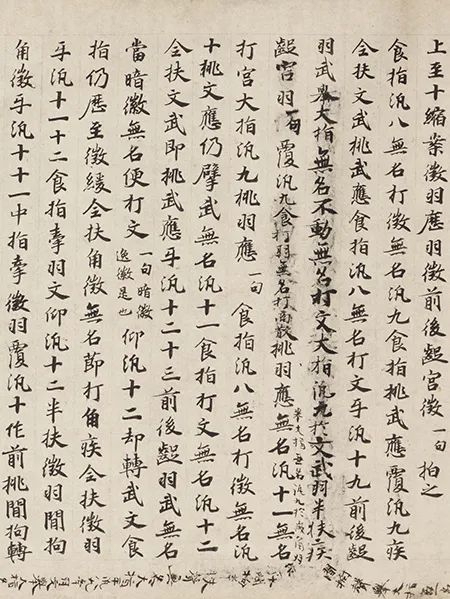 上至十縮案徵羽應羽徵前後齪宮徵一句拍之
食指汎八無名打徵無名汎九食指挑武應覆汎九疾
全扶文武挑武應食指汎八無名打文乎汎十九前後齪
羽武舉大指無名不動無名打文大指汎九於文武羽半扶疾
齪宮羽一句覆汎九食打羽無名打商散挑羽應無名汎十一無名
打宮大指汎九挑羽應一句食指汎八無名打徵無名汎
十挑文應仍擘武無名汎十一食指打文無名汎十二
全扶文武即挑武應乎汎十二十三前後齪羽武無名
當暗徵無名便打文一句暗徵逸徵是也仰汎十二却轉武文食
指仍歷至徵緩全扶角徵無名即打角疾全扶徵羽
乎汎十一十二食指牽羽文仰汎十二半扶徵羽間拘
角徵乎汎十十一中指牽徵羽覆汎十作前挑間拘轉